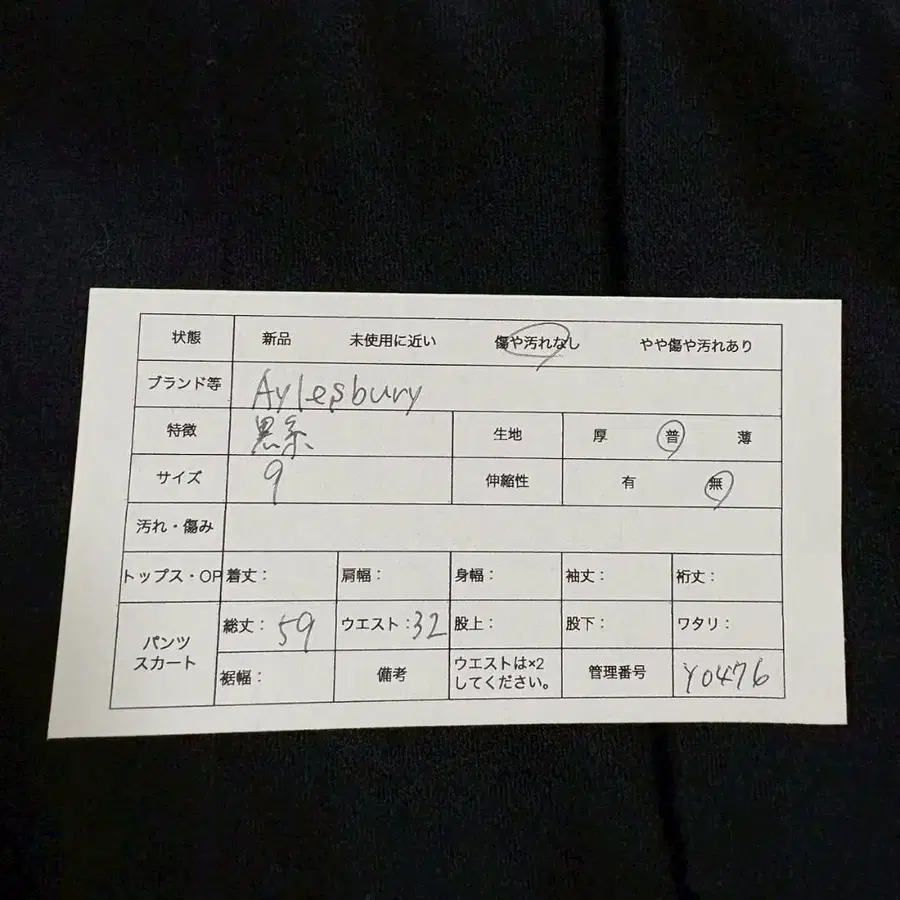 状態 新品 未使用に近い 傷や汚れなし やや傷や汚れあり
ブランド等 Aylesbury
特徴 黒系 生地 厚 普 薄
サイズ 9 伸縮性 有 無
汚れ・傷み
トップス・OP 着丈: 肩幅: 身幅: 袖丈: 裄丈:
パンツ スカート 総丈: 59 ウエスト: 32 股上: 股下: ワタリ:
裾幅: 備考 ウエストは×2 してください。 管理番号 Y0476